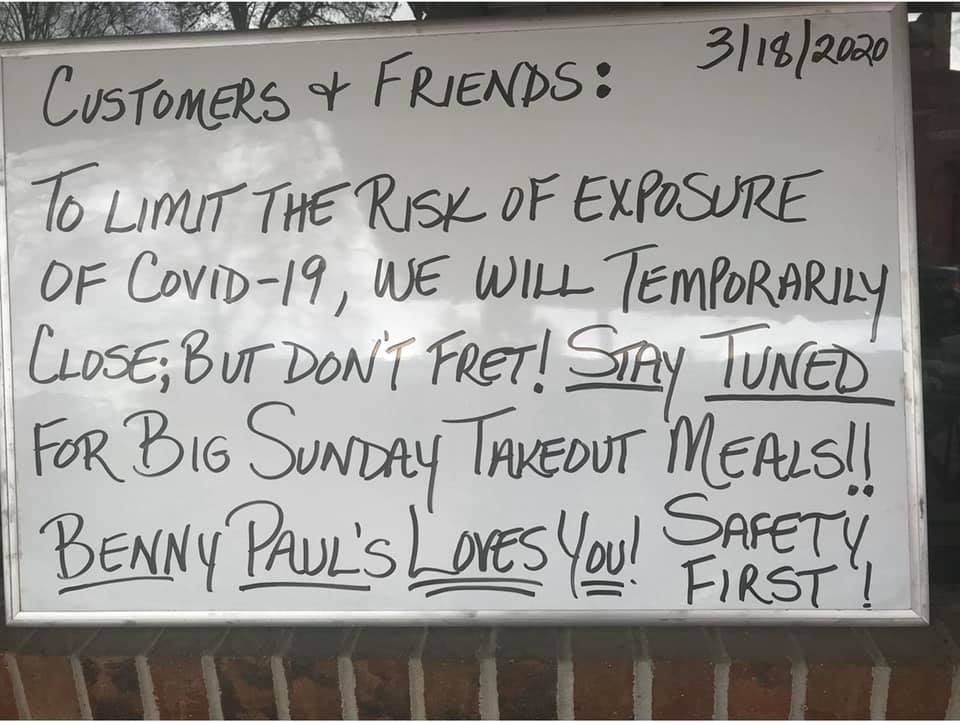 3/18/2020
CUSTOMERS & FRIENDS:
TO LIMIT THE RISK OF EXPOSURE
OF COVID-19, WE WILL TEMPORARILY
CLOSE; BUT DON'T FRET! STAY TUNED
FOR BIG SUNDAY TAKEOUT MEALS!!
BENNY PAUL'S LOVES YOU! SAFETY
FIRST!